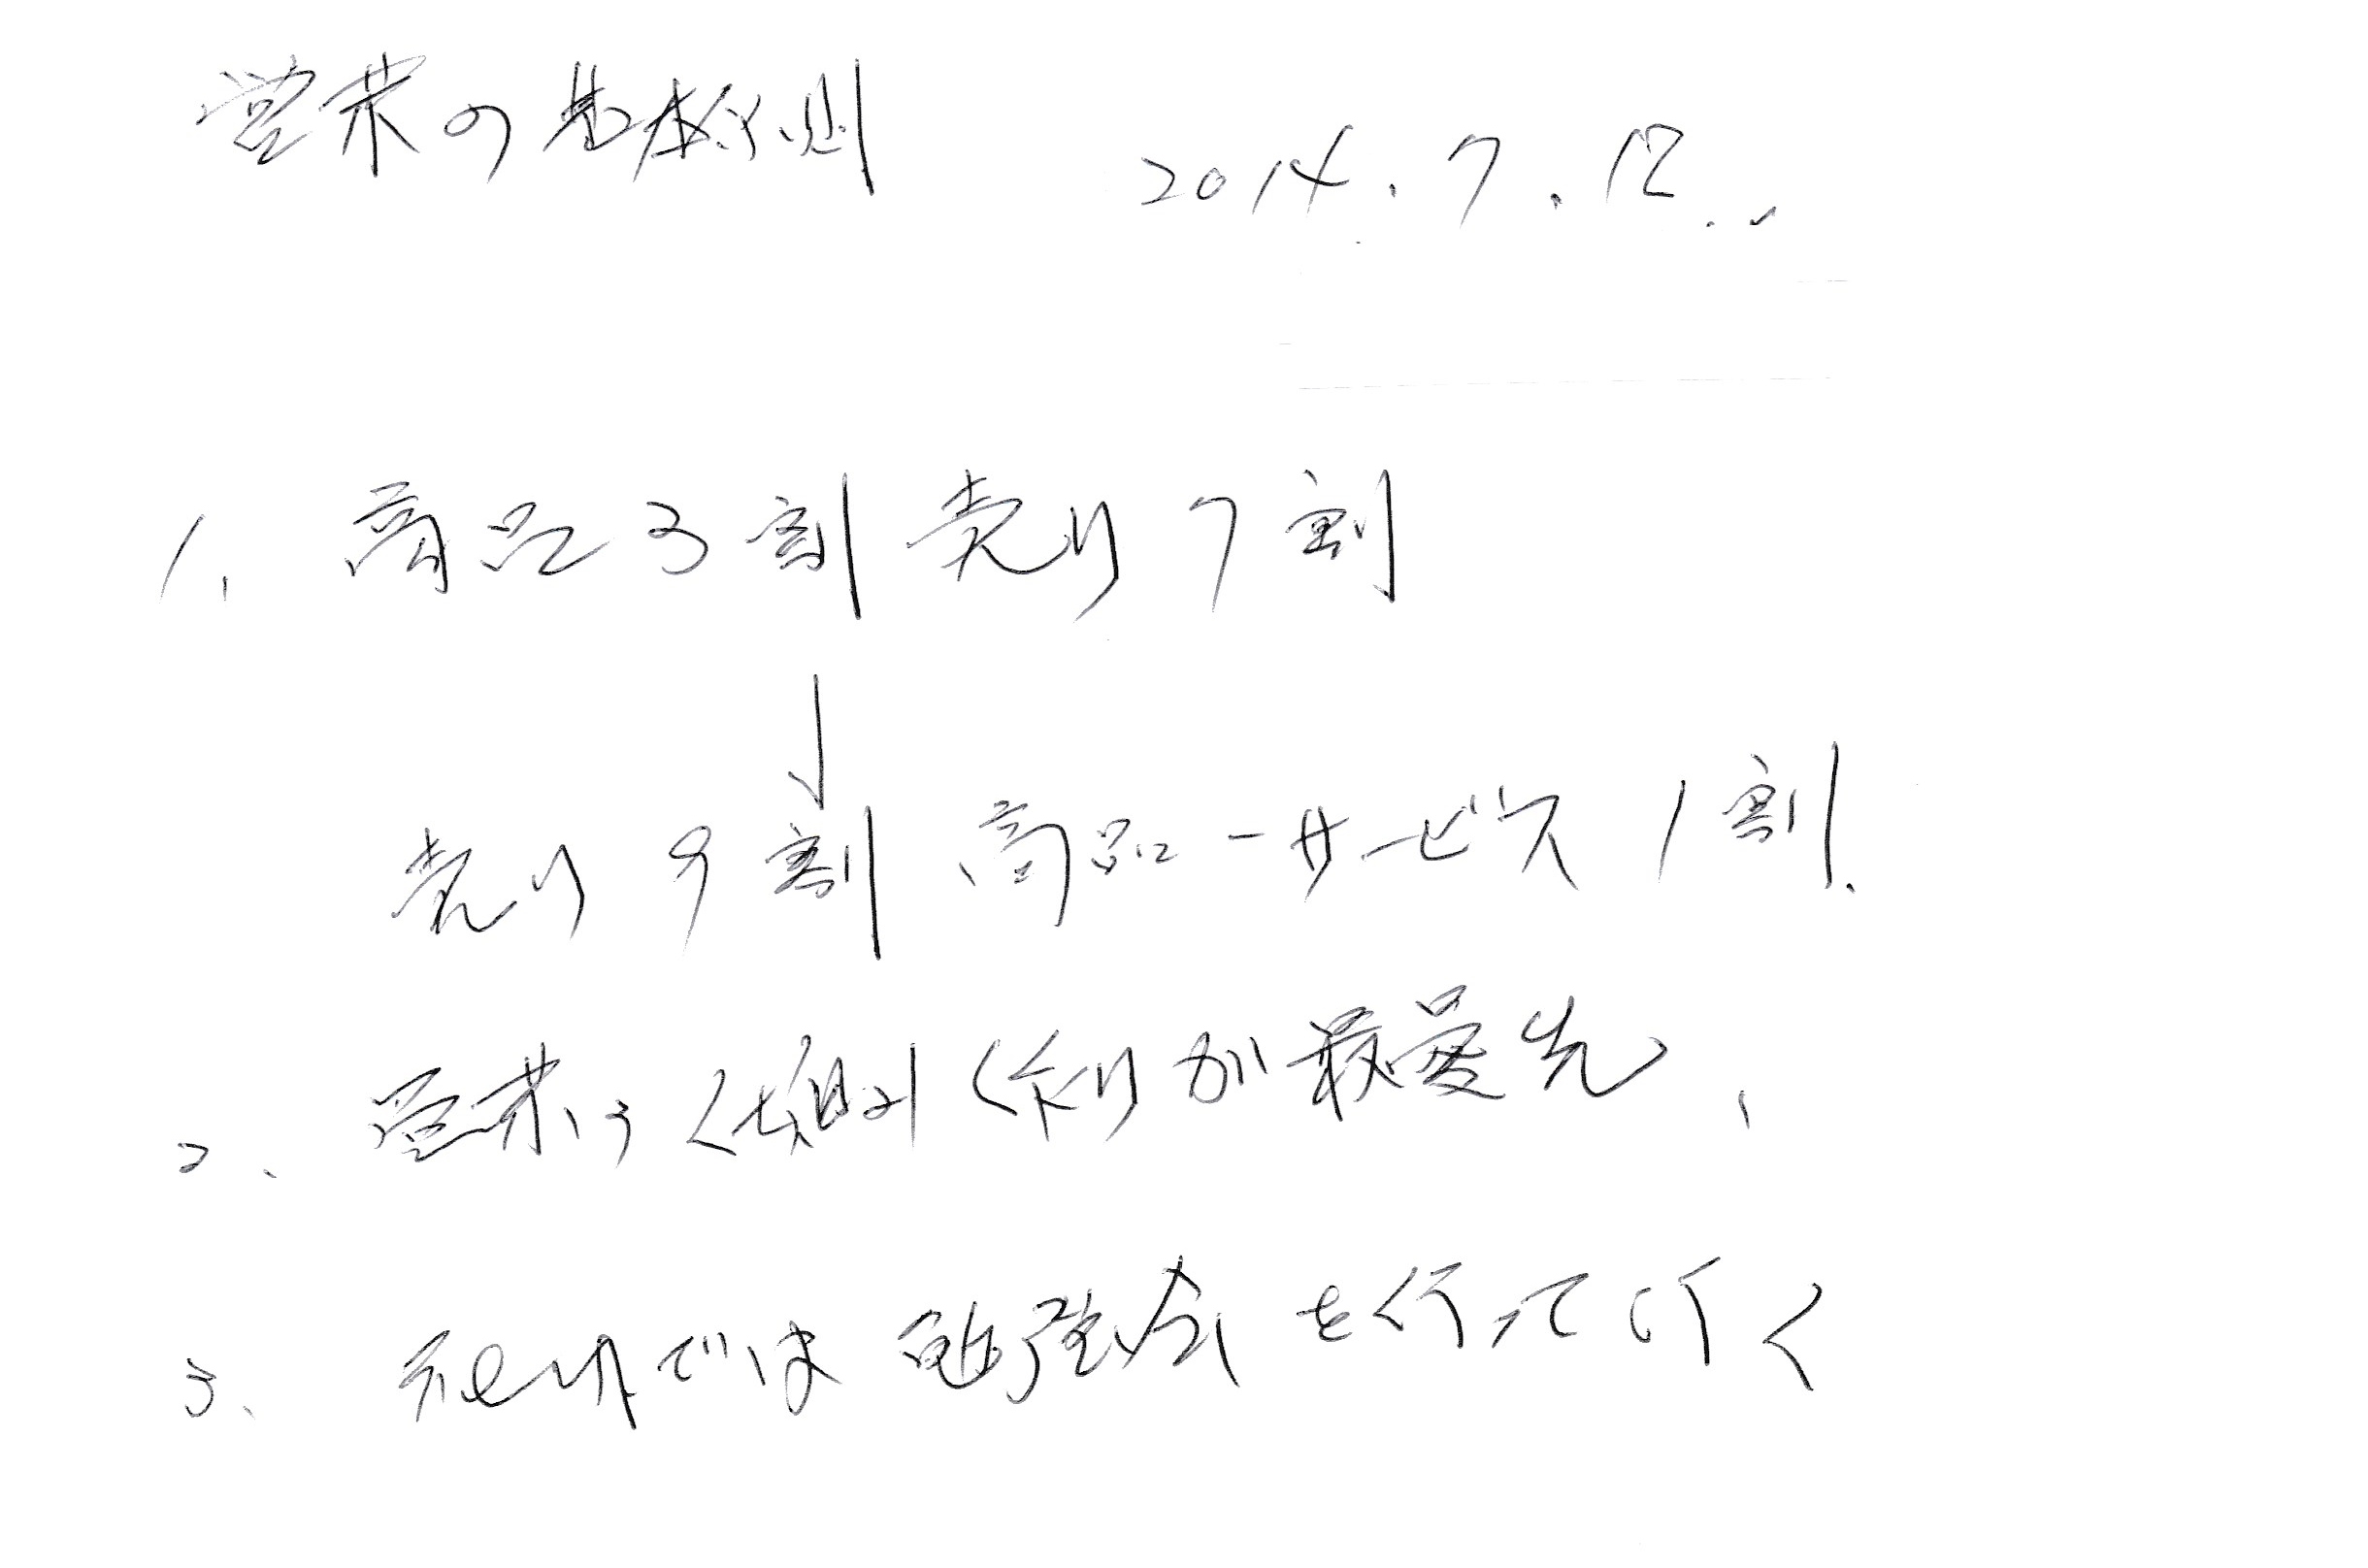 営業の基本行動 2014.7.12.
1. 商品3割 売り7割
↓
売り9割 商品-サービス1割.
2、営業は仕組み作りが最優先、
3、では勉強会を行って行く